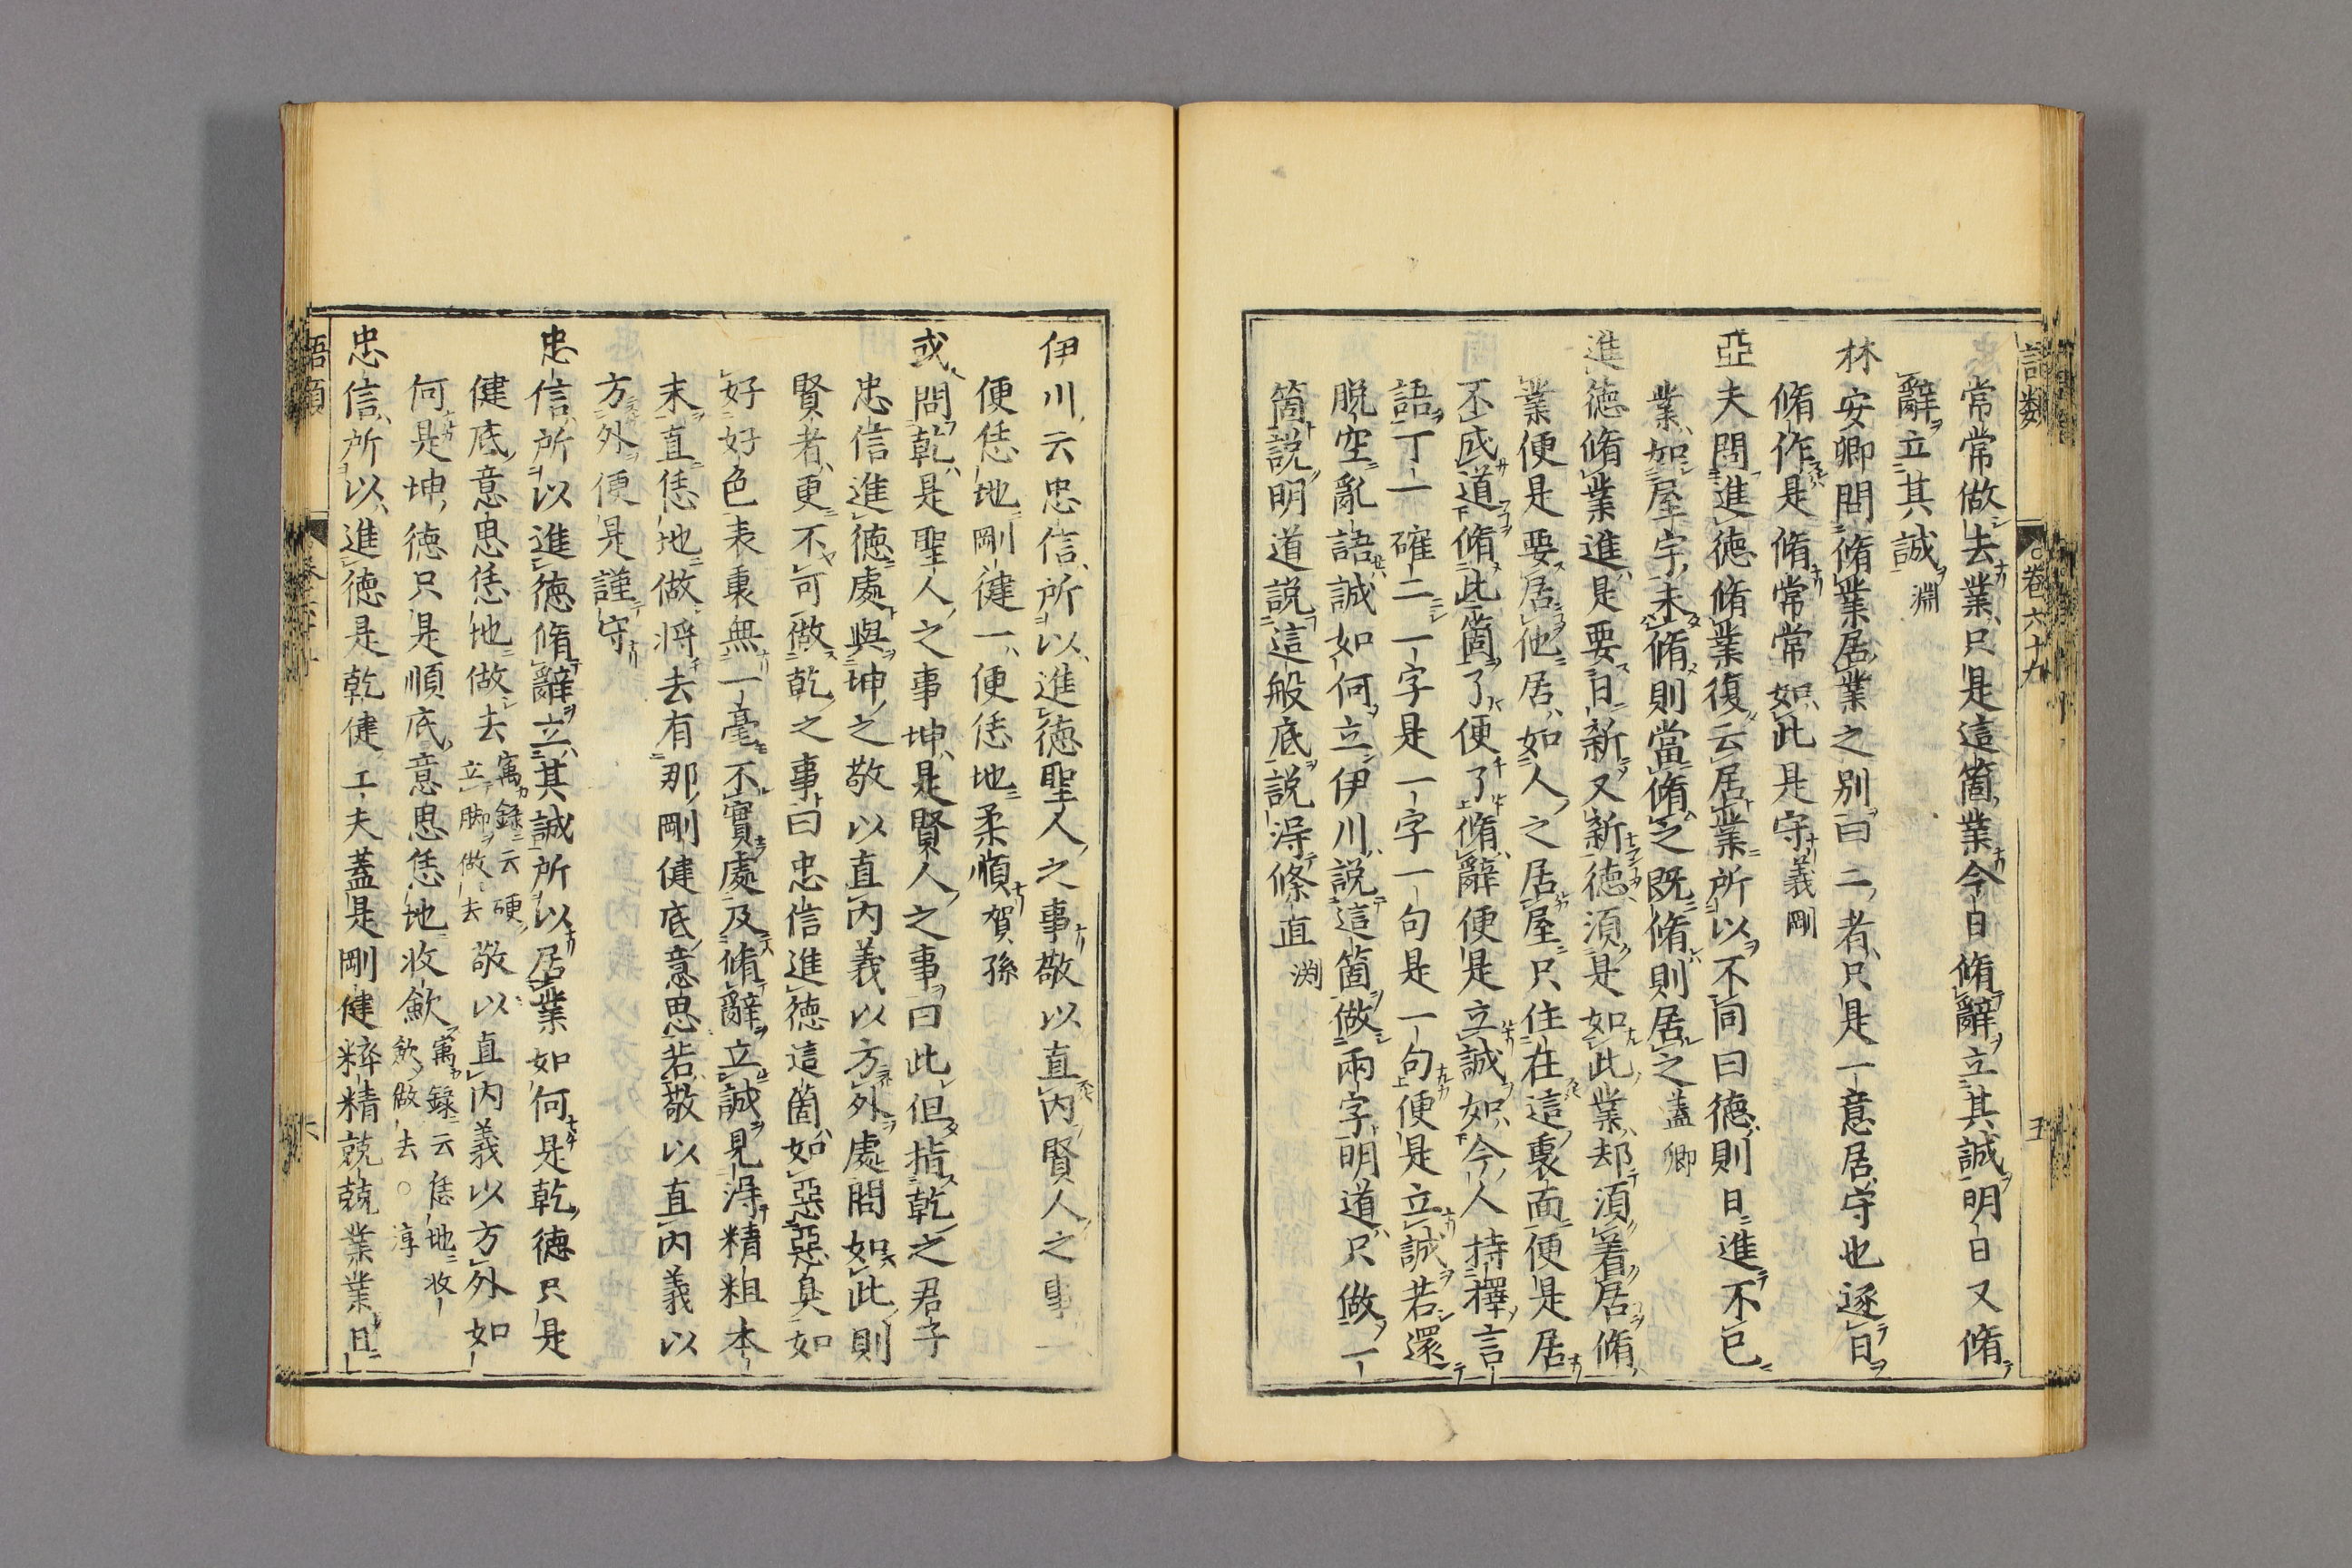 語類 卷六十九 五
常常做去業只是這箇業今日脩辭立其誠明日又脩
辭立其誠淵
林安卿問脩業居業之別曰二者只是一意居守也逐日
脩作是脩常常如此是守義剛
亞夫問進德脩業復云居業所以不同曰德則日進不已
業如屋宇未脩則當脩之既脩則居之蓋卿
進德脩業進是要日新又新德須是如此業却須著居脩
業便是要居他居如人之居屋只住在這裏面便是居
不成道脩此箇了便了脩辭便是立誠如今人持擇言
語丁一確二一字是一字一句是一句便是立誠若還
脫空亂語誠如何立伊川說這箇做兩字明道只做一
箇說明道說這般底說得條直淵
伊川云忠信所以進德聖人之事敬以直內賢人之事一
便恁地剛健一便恁地柔順賀孫
或問乾是聖人之事坤是賢人之事曰此但指乾之君子
忠信進德處與坤之敬以直內義以方外處問如此則
賢者更不可做乾之事曰忠信進德這箇如惡惡臭如
好好色表裏無一毫不實處及脩辭立誠見得精粗本
末直恁地做將去有那剛健底意思若敬以直內義以
方外便是謹守
忠信所以進德脩辭立其誠所以居業如何是乾德只是
健底意思恁地做去寓錄云硬立脚做去敬以直內義以方外如
何是坤德只是順底意思恁地收斂寓錄云恁地收斂做去○淳
忠信所以進德是乾健工夫蓋是剛健粹精兢兢業業日
語類